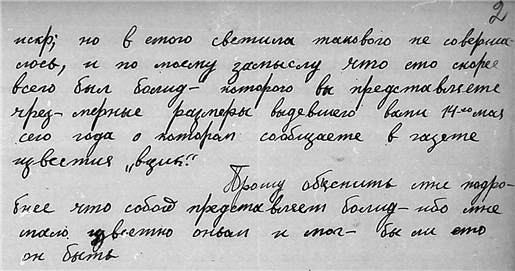 2
искр; но в етого светила такового не соверша-
лось, и по моему замыслу что ето скорее
всего был болид – которого вы представляете
чрез-мерные размеры видевшего вами 14-го мая
сего года о котором сообщаете в газете
известия „вцик".
Прошу объяснить мне подро-
бнее что собой представляет болид – ибо мне
мало известно оньом и мог – бы ли ето
он быть